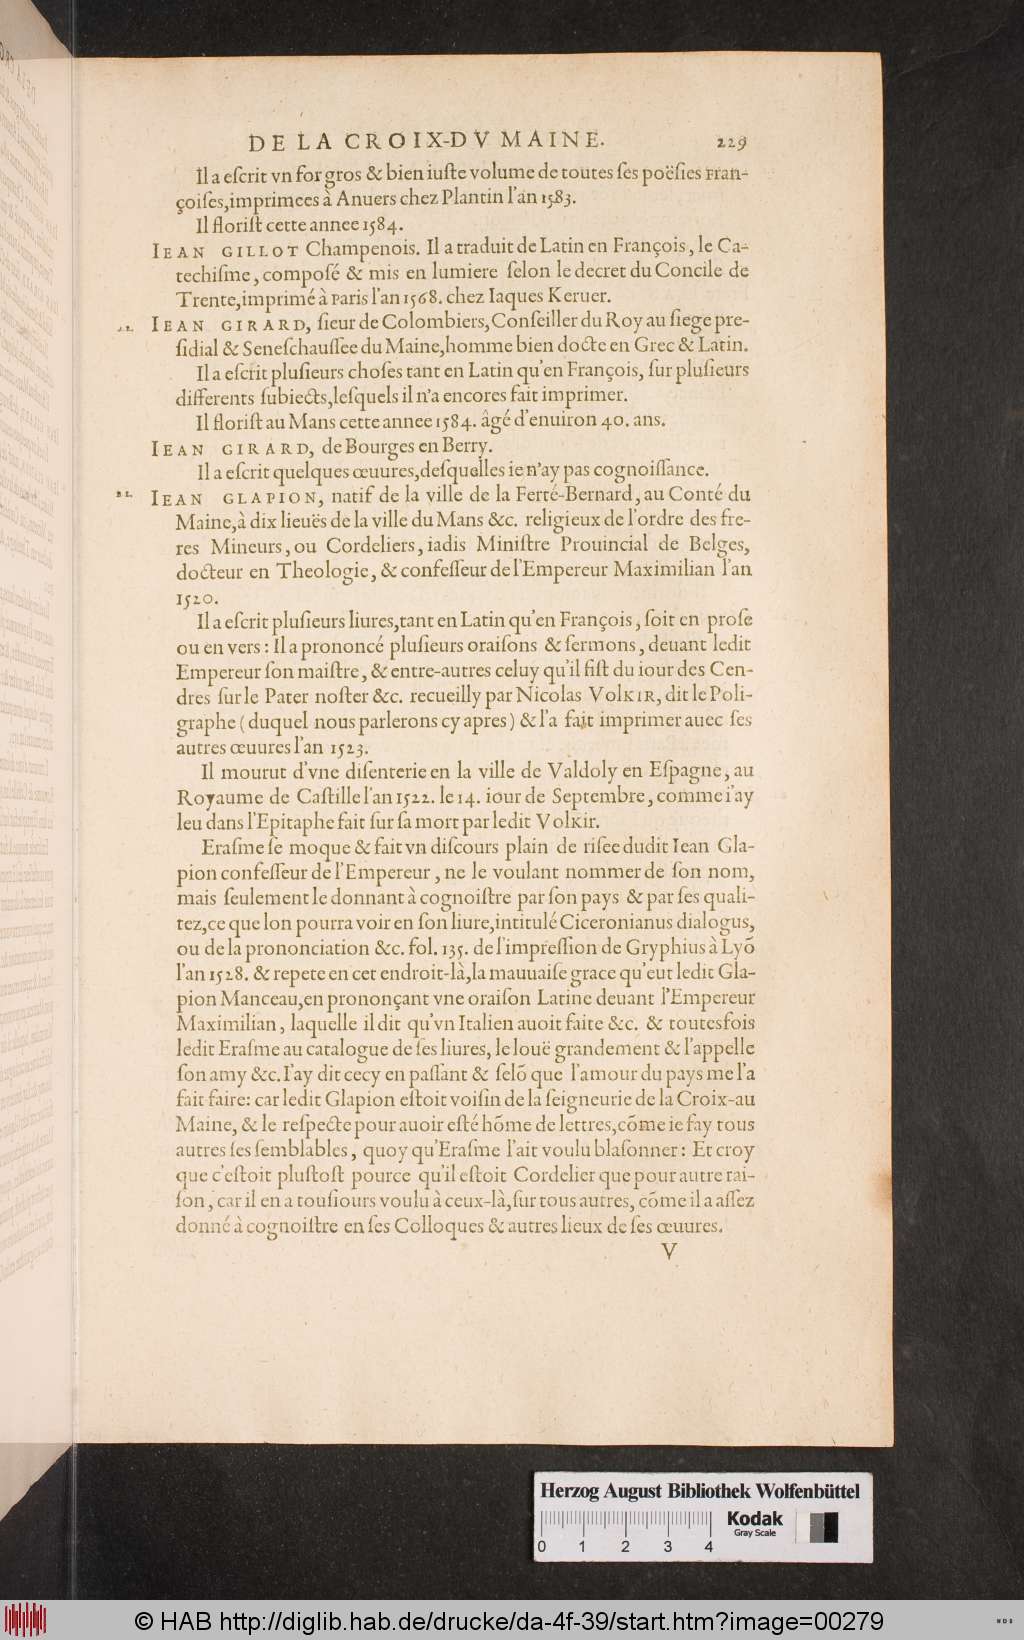 DE LA CROIX-DV MAINE. 229
Il a eſcrit vn for gros & bien iuſte volume de toutes ſes poëſies Fran-
çoiſes,imprimees à Anuers chez Plantin l'an 1583.
Il floriſt cette annee 1584.
IEAN GILLOT Champenois. Il a traduit de Latin en François, le Ca-
techiſme, compoſé & mis en lumiere ſelon le decret du Concile de
Trente,imprimé à Paris l'an 1568. chez Iaques Keruer.
IEAN GIRARD, ſieur de Colombiers,Conſeiller du Roy au ſiege pre-
ſidial & Seneſchauſſee du Maine,homme bien docte en Grec & Latin.
Il a eſcrit pluſieurs choſes tant en Latin qu'en François, ſur pluſieurs
differents ſubiects,leſquels il n'a encores fait imprimer.
Il floriſt au Mans cette annee 1584. âgé d'enuiron 40. ans.
IEAN GIRARD, de Bourges en Berry.
Il a eſcrit quelques œuures,deſquelles ie n'ay pas cognoiſſance.
IEAN GLAPION, natif de la ville de la Ferté-Bernard, au Conté du
Maine,à dix lieuës de la ville du Mans &c. religieux de l'ordre des fre-
res Mineurs, ou Cordeliers, iadis Miniſtre Prouincial de Belges,
docteur en Theologie, & confeſſeur de l'Empereur Maximilian l'an
1520.
Il a eſcrit pluſieurs liures,tant en Latin qu'en François, ſoit en proſe
ou en vers : Il a prononcé pluſieurs oraiſons & ſermons, deuant ledit
Empereur ſon maiſtre, & entre-autres celuy qu'il fiſt du iour des Cen-
dres ſur le Pater noſter &c. recueilly par Nicolas Volkir, dit le Poli-
graphe (duquel nous parlerons cy apres) & l'a fait imprimer auec ſes
autres œuures l'an 1523.
Il mourut d'vne diſenterie en la ville de Valdoly en Eſpagne, au
Royaume de Caſtille l'an 1522. le 14. iour de Septembre, comme i'ay
leu dans l'Epitaphe fait ſur ſa mort par ledit Volkir.
Eraſme ſe moque & fait vn diſcours plain de riſee dudit Iean Gla-
pion confeſſeur de l'Empereur, ne le voulant nommer de ſon nom,
mais ſeulement le donnant à cognoiſtre par ſon pays & par ſes quali-
tez,ce que lon pourra voir en ſon liure,intitulé Ciceronianus dialogus,
ou de la prononciation &c. fol. 135. de l'impreſſion de Gryphius à Lyō
l'an 1528. & repete en cet endroit-là,la mauuaiſe grace qu'eut ledit Gla-
pion Manceau,en prononçant vne oraiſon Latine deuant l'Empereur
Maximilian, laquelle il dit qu'vn Italien auoit faite &c. & toutesfois
ledit Eraſme au catalogue de ſes liures, le louë grandement & l'appelle
ſon amy &c. I'ay dit cecy en paſſant & ſelō que l'amour du pays me l'a
fait faire: car ledit Glapion eſtoit voiſin de la ſeigneurie de la Croix-au
Maine, & le reſpecte pour auoir eſté hōme de lettres,cōme ie fay tous
autres ſes ſemblables, quoy qu'Eraſme l'ait voulu blaſonner : Et croy
que c'eſtoit pluſtoſt pource qu'il eſtoit Cordelier que pour autre rai-
ſon, car il en a touſiours voulu à ceux-là,ſur tous autres, cōme il a aſſez
donné à cognoiſtre en ſes Colloques & autres lieux de ſes œuures.
V
Herzog August Bibliothek Wolfenbüttel
Kodak
Gray Scale
0 1 2 3 4
© HAB http://diglib.hab.de/drucke/da-4f-39/start.htm?image=00279